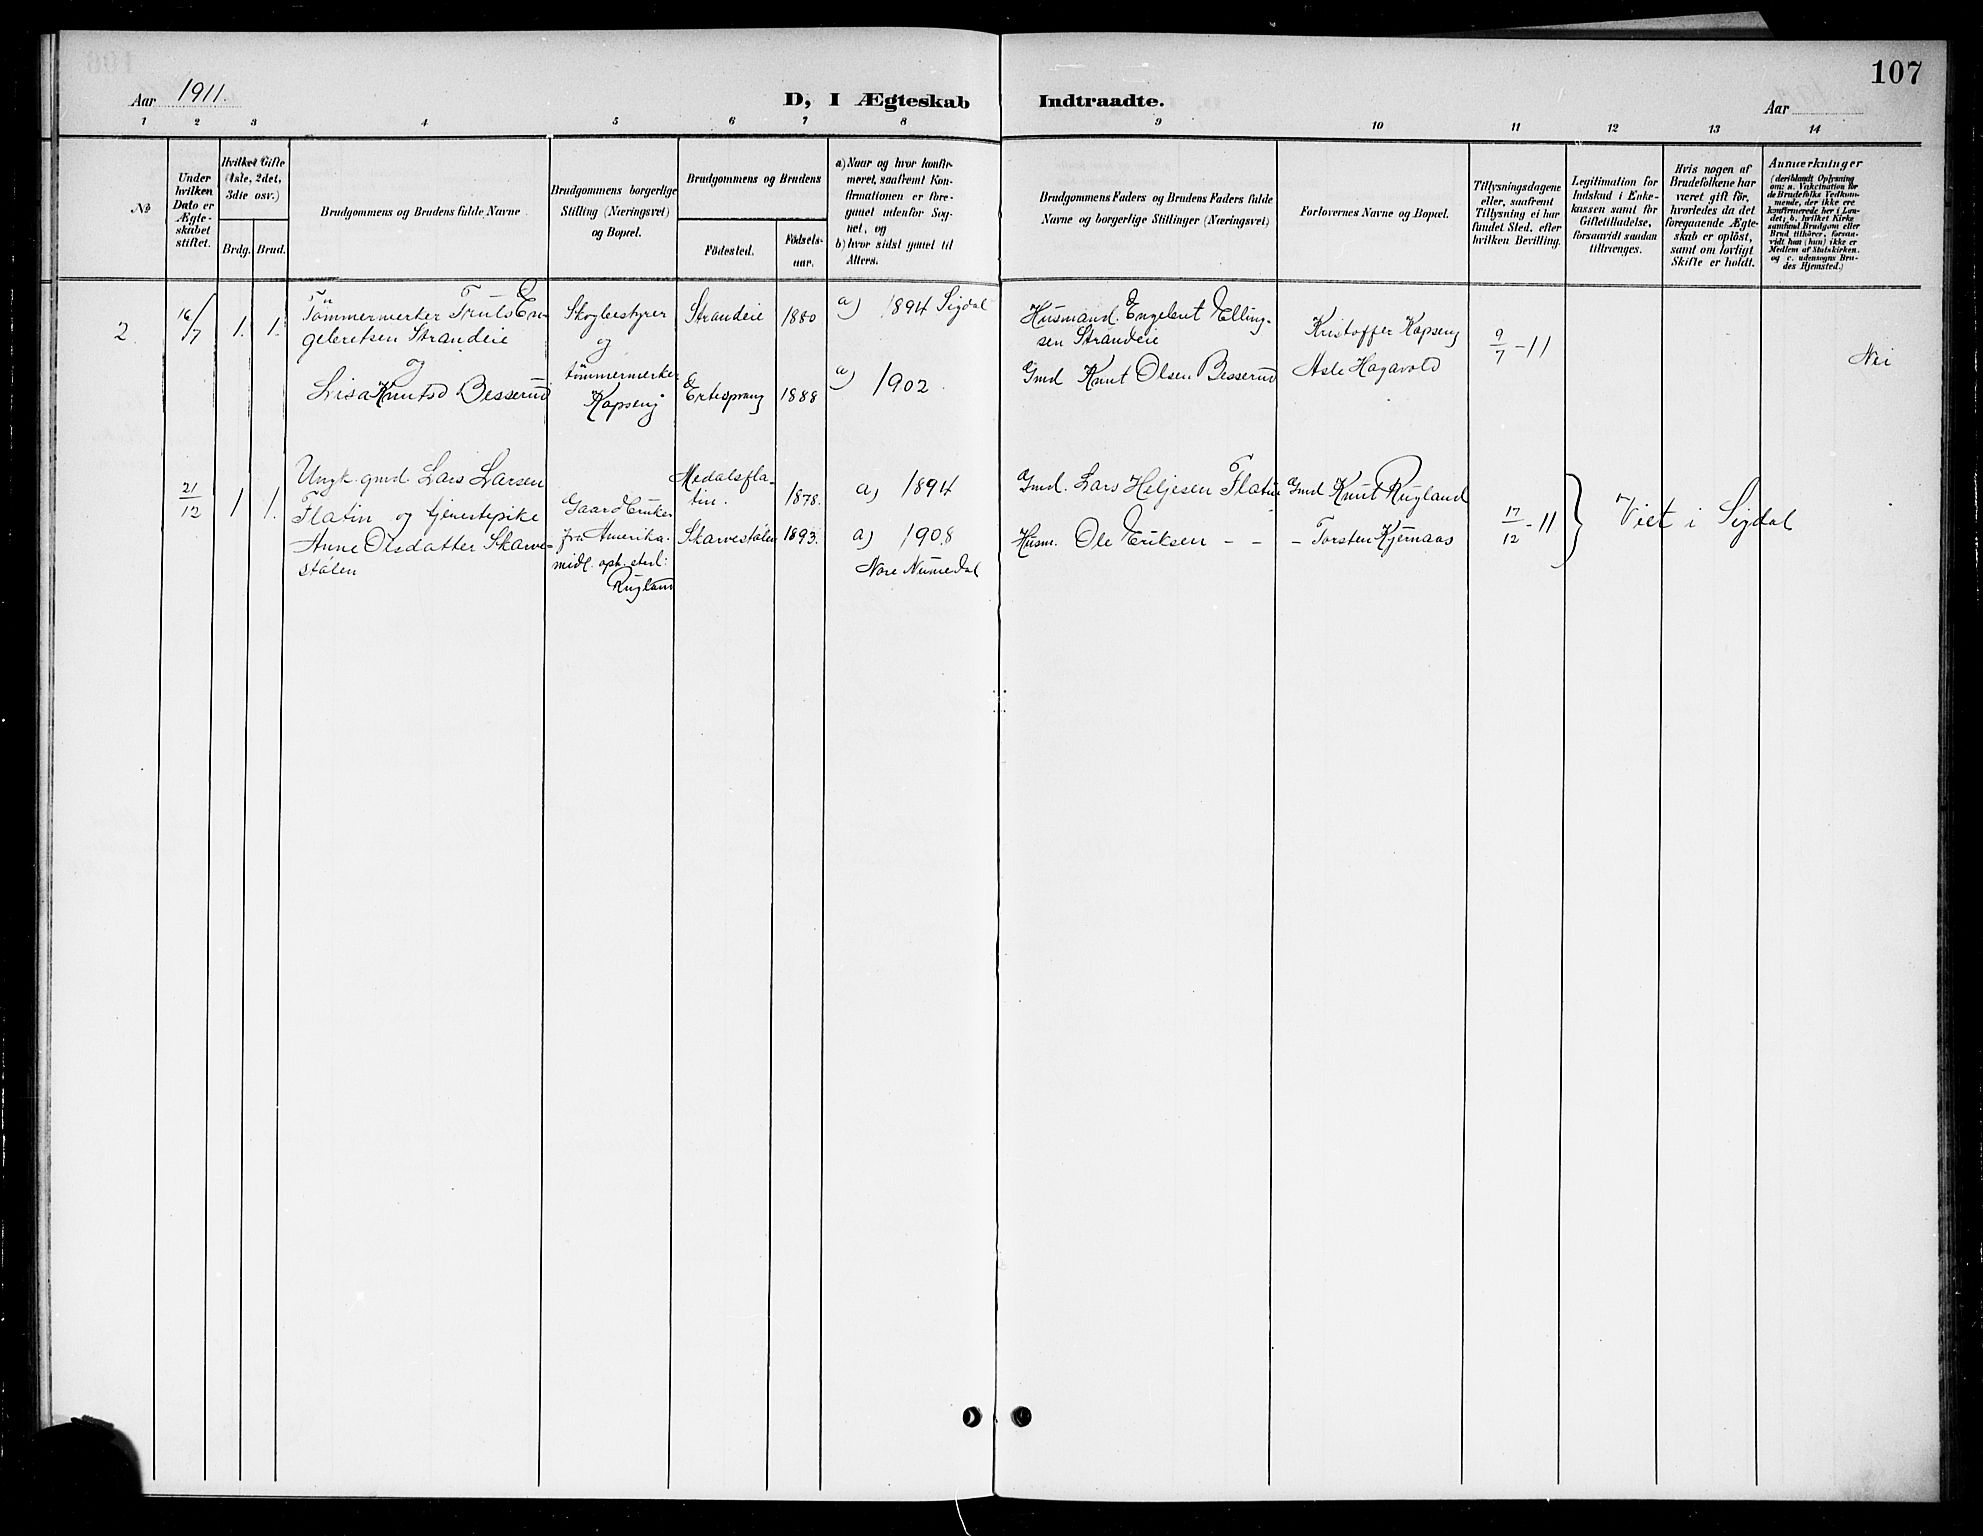 107
Aar 1911.
D, I Ægteskab Indtraadte.
Aar
1 2 3 4 5 6 7 8 9 10 11 12 13 14
No
Under
hvilken
Dato er
Ægte-
skabet
stiftet.
Hvilket Gifte
(1ste, 2det,
3die osv.)
Brdg. Brud.
Brudgommens og Brudens fulde Navne.
Brudgommens borgerlige
Stilling (Næringsvei)
og Bopæl.
Brudgommens og Brudens
Födested.
Födsels-
aar.
a) Naar og hvor konfir-
meret, saafremt Kon-
firmationen er fore-
gaaet udenfor Sog-
net, og
b) hvor sidst gaaet til
Alters.
Brudgommens Faders og Brudens Faders fulde
Navne og borgerlige Stillinger (Næringsvei)
Forlovernes Navne og Bopæl.
Tillysningsdagene
eller, saafremt
Tillysning ei har
fundet Sted, efter
hvilken Bevilling.
Legitimation for
Indskud i Enke-
kassen samt for
Giftetilladelse,
forsaavidt saadan
tiltrænges.
Hvis nogen af
Brudefolkene har
været gift för,
hvorledes da det
foregaaende Ægte-
skab er oplöst,
samt om lovligt
Skifte er holdt.
Anmærkninger
(deriblandt Oplysning
om: a. Vakcination for
de Brudefolks Vedkom-
mende, der ikke ere
konfirmerede her i Lan-
det; b. hvilket Kirke
samfund Brudgom eller
Brud tilhörer, forsaa-
vidt han (hun) ikke er
Medlem af Statskirken.
og c. udensogns Bru-
des Hjemsted.)
2. 16/7 1. 1.
Tömmermerker Truls En-
gebretsen Strandeie
og
Lisa Knutsd Besserud
Skogbestyrer
og
tömmermerker
Kopseng
Strandeie 1880 a) 1894 Sigdal
Ertesprang 1888 a) 1902.
Husmand. Engebret Elling-
sen Strandeie
Gmd Knut Olsen Besserud
Kristoffer Kopseng
Asle Hagavold
9/7 - 11
Nei
21/12 1 1.
Ungk. gmd. Lars Larsen
Flatin og tjenestepike
Anne Olsdatter Skarve-
stölen
Gaardbruker
fra Amerika.
midl. oph. sted:
Rugland
Medalsfla-
tin. 1878. a) 1894
Skarvestölen 1893. a) 1908
Nore Numedal
Gmd. Lars Heljesen Flatin
Husm. Ole Eriksen - -
Gmd Knut Rugland
- Torsten Kjernaas
17/12 - 11
Viet i Sigdal